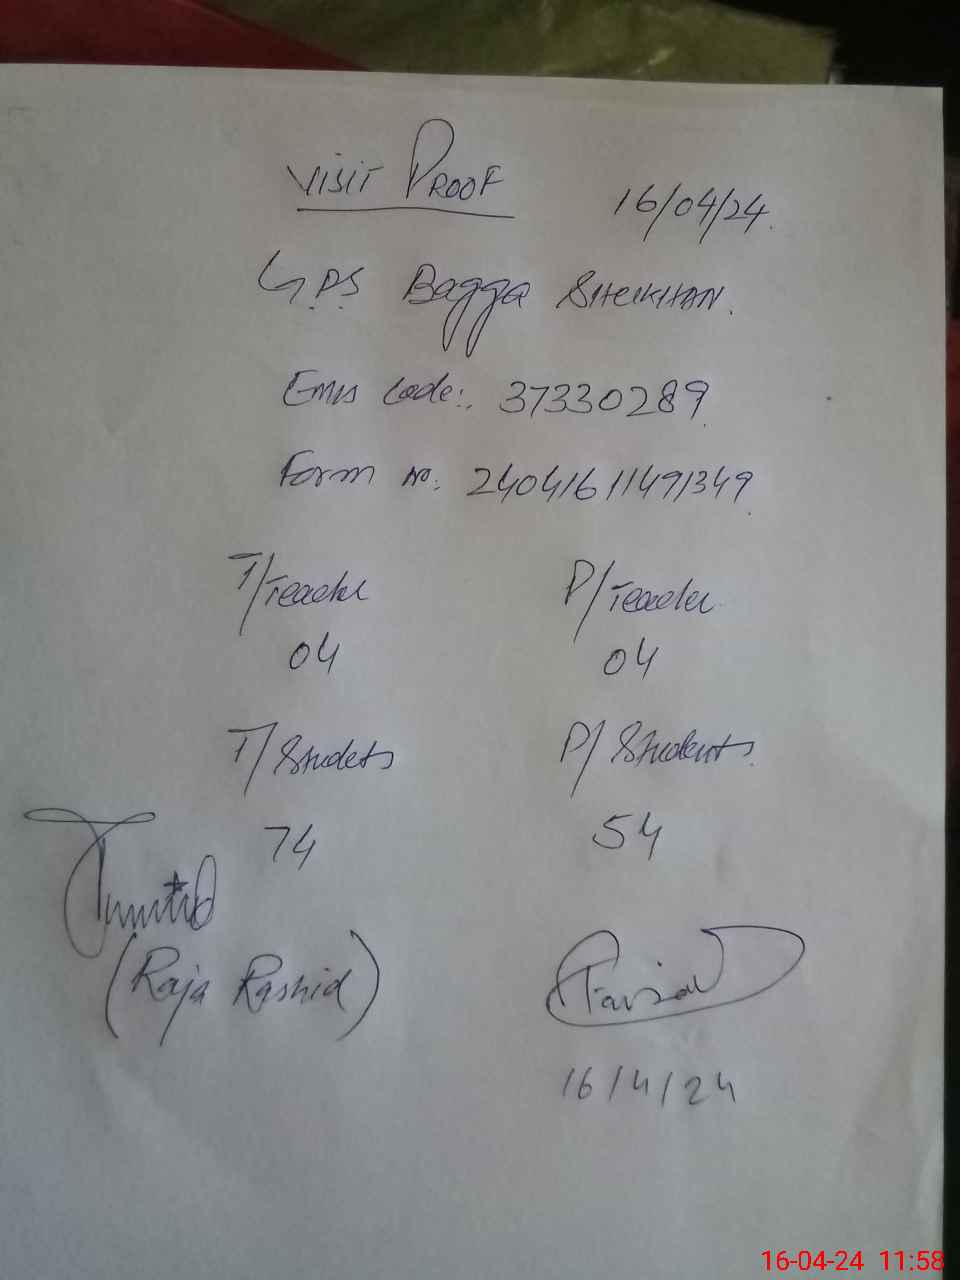 VISIT PROOF 16/04/24.
G.P.S Bagga SHEIKHAN.
Emis Code:. 37330289.
Form no. 24041611491349.
T/Teacher P/Teacher
04 04
T/Studets P/Students.
74 54
(Raja Rashid)
16/4/24
16-04-24 11:58